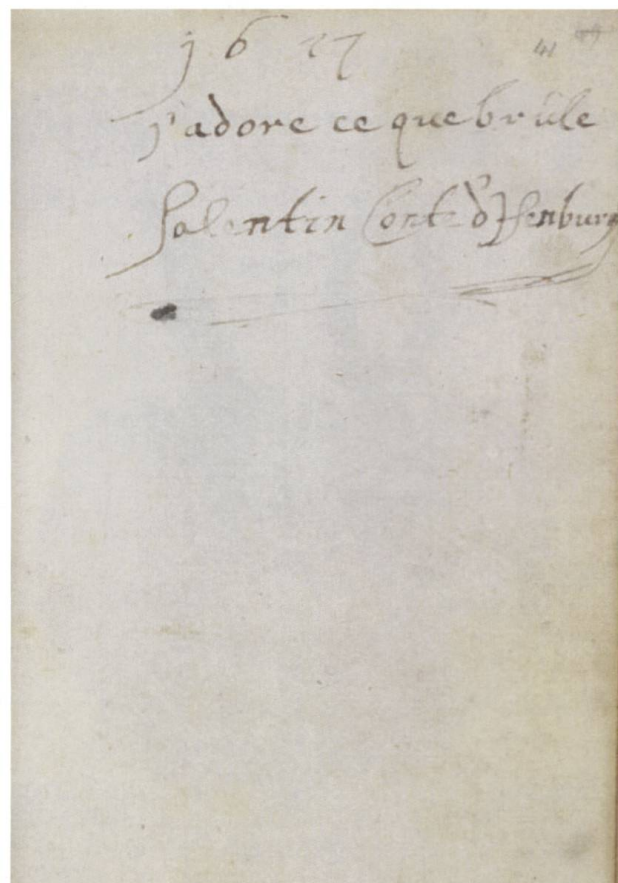 16 27
41
j'adore ce que brûle
Salentin Conte d'Isenburg